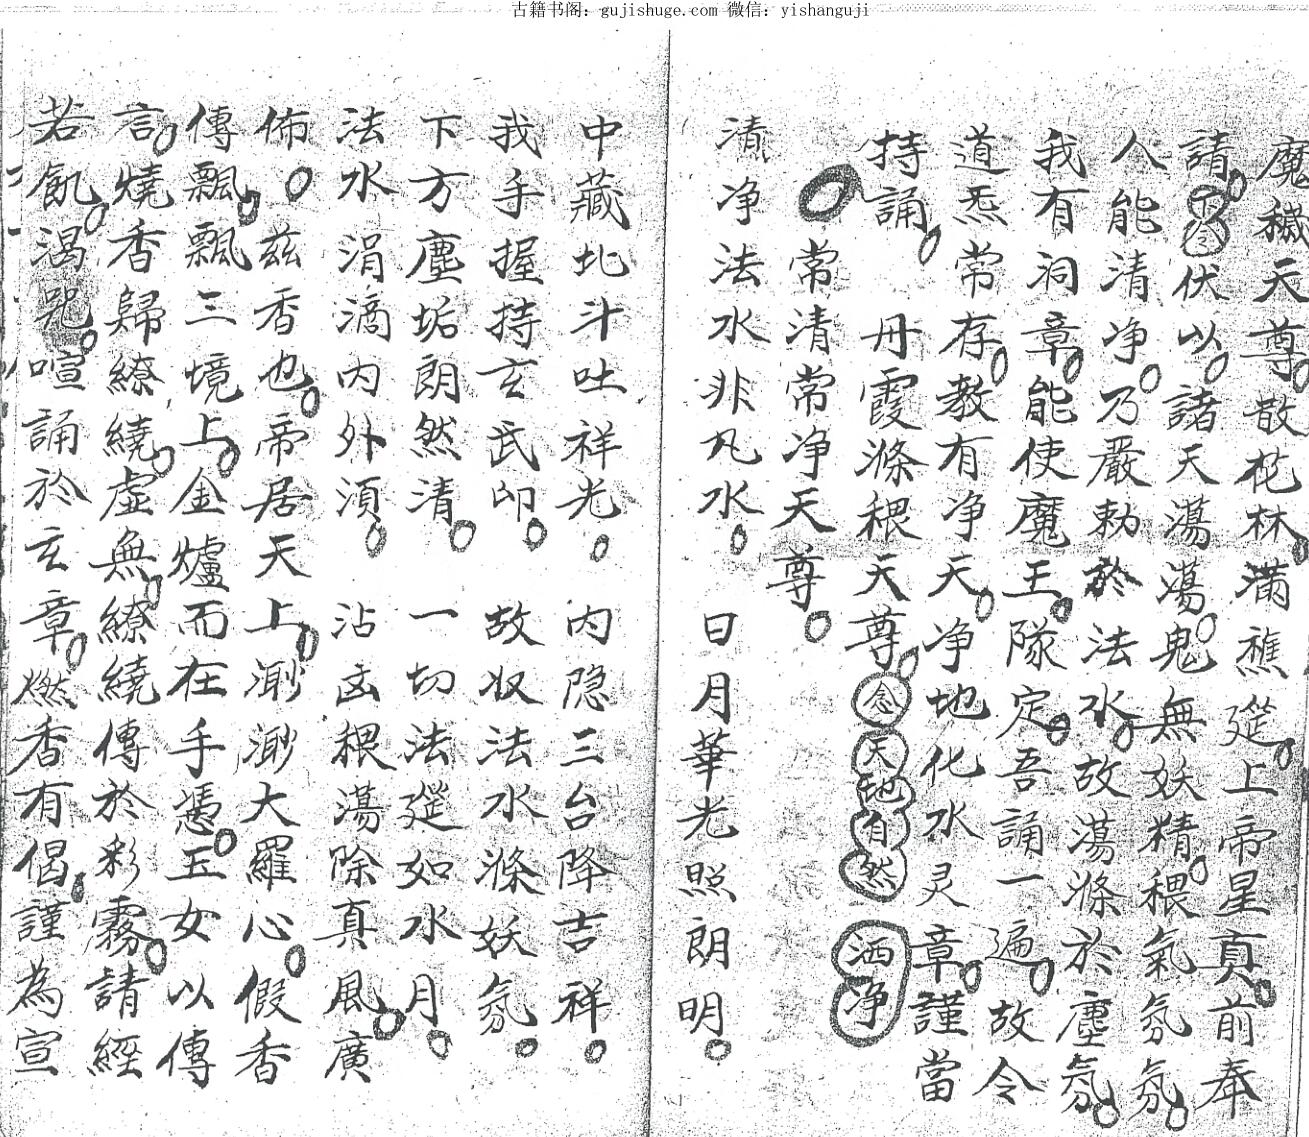 古籍书阁：gujishuge.com 微信：yishanguji
魔穢天尊散花林滿樵筵上帝星真前奉
請下三伏以諸天蕩蕩鬼無妖精穢氣氛氛
人能清净乃嚴勅於法水故蕩滌於塵氛
我有洞章能使魔王隊定吾誦一遍故令
道炁常存教有净天净地化水灵章謹當
持誦 丹霞滌穢天尊 念天地自然 洒净
常清常净天尊
清净法水非凡水 日月華光照朗明
中藏北斗吐祥光 内隐三台降吉祥
我手握持玄武印 故収法水滌妖氛
下方塵垢朗然清 一切法筵如水月
法水涓滴内外湏 沾玄穢蕩除真風廣
佈 兹香也帝居天上渺渺大羅心假香
傳飄飄三境上金爐而在手憑玉女以傳
言燒香歸繚繞虛無繚繞傳於彩霧請經
若飢渴咒喧誦於玄章燃香有偈謹為宣